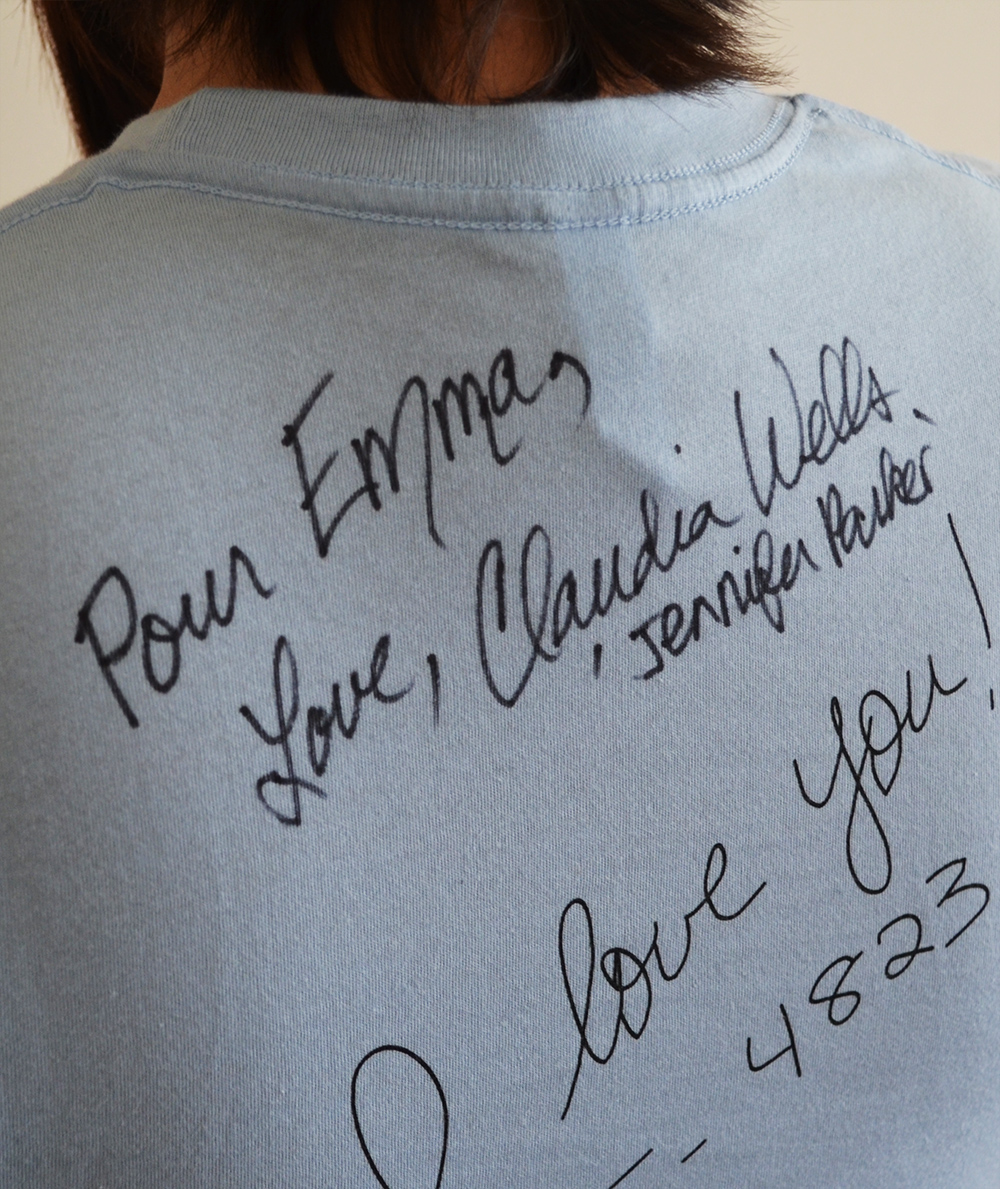 Pour Emma,
Love, Claudia Wells.
, Jennifer Parker
I love you!
4823